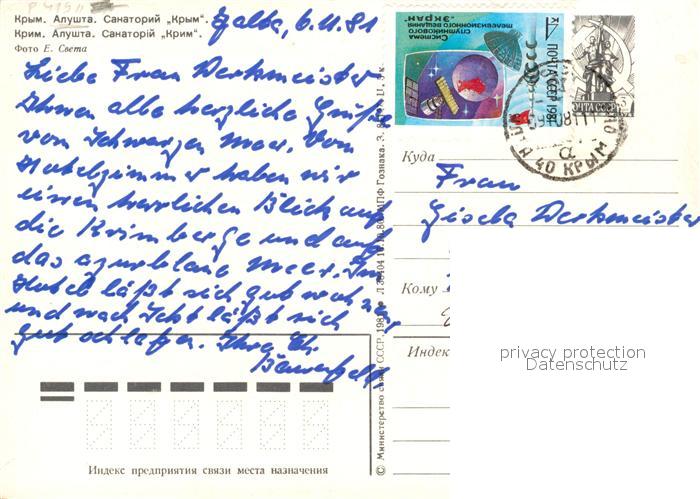 Крым. Алушта. Санаторий „Крым".
Крим. Алушта. Санаторій „Крим".
Фото Е. Света
Jalta, 6.11.81
Liebe Frau Derkmeister
Ihnen alle herzliche Grüße
vom Schwarzen Meer. Vom
Hotelzimmer haben wir
einen herrlichen Blick auf
die Krimberge und auf
das azurblaue Meer. Im
Hotel läßt sich gut wohnen,
und nach läßt sich
gut schlafen. Ihre
Система
спутникового
телевизионного вещания
"ЭКРАН"
ПОЧТА СССР 1981
ПОЧТА СССР
40 КРЫМ
Куда
Frau
Gisela Derkmeister
Кому
Индекс
privacy protection
Datenschutz
© Министерство связи СССР, 198
МПФ Гознака.
Индекс предприятия связи места назначения